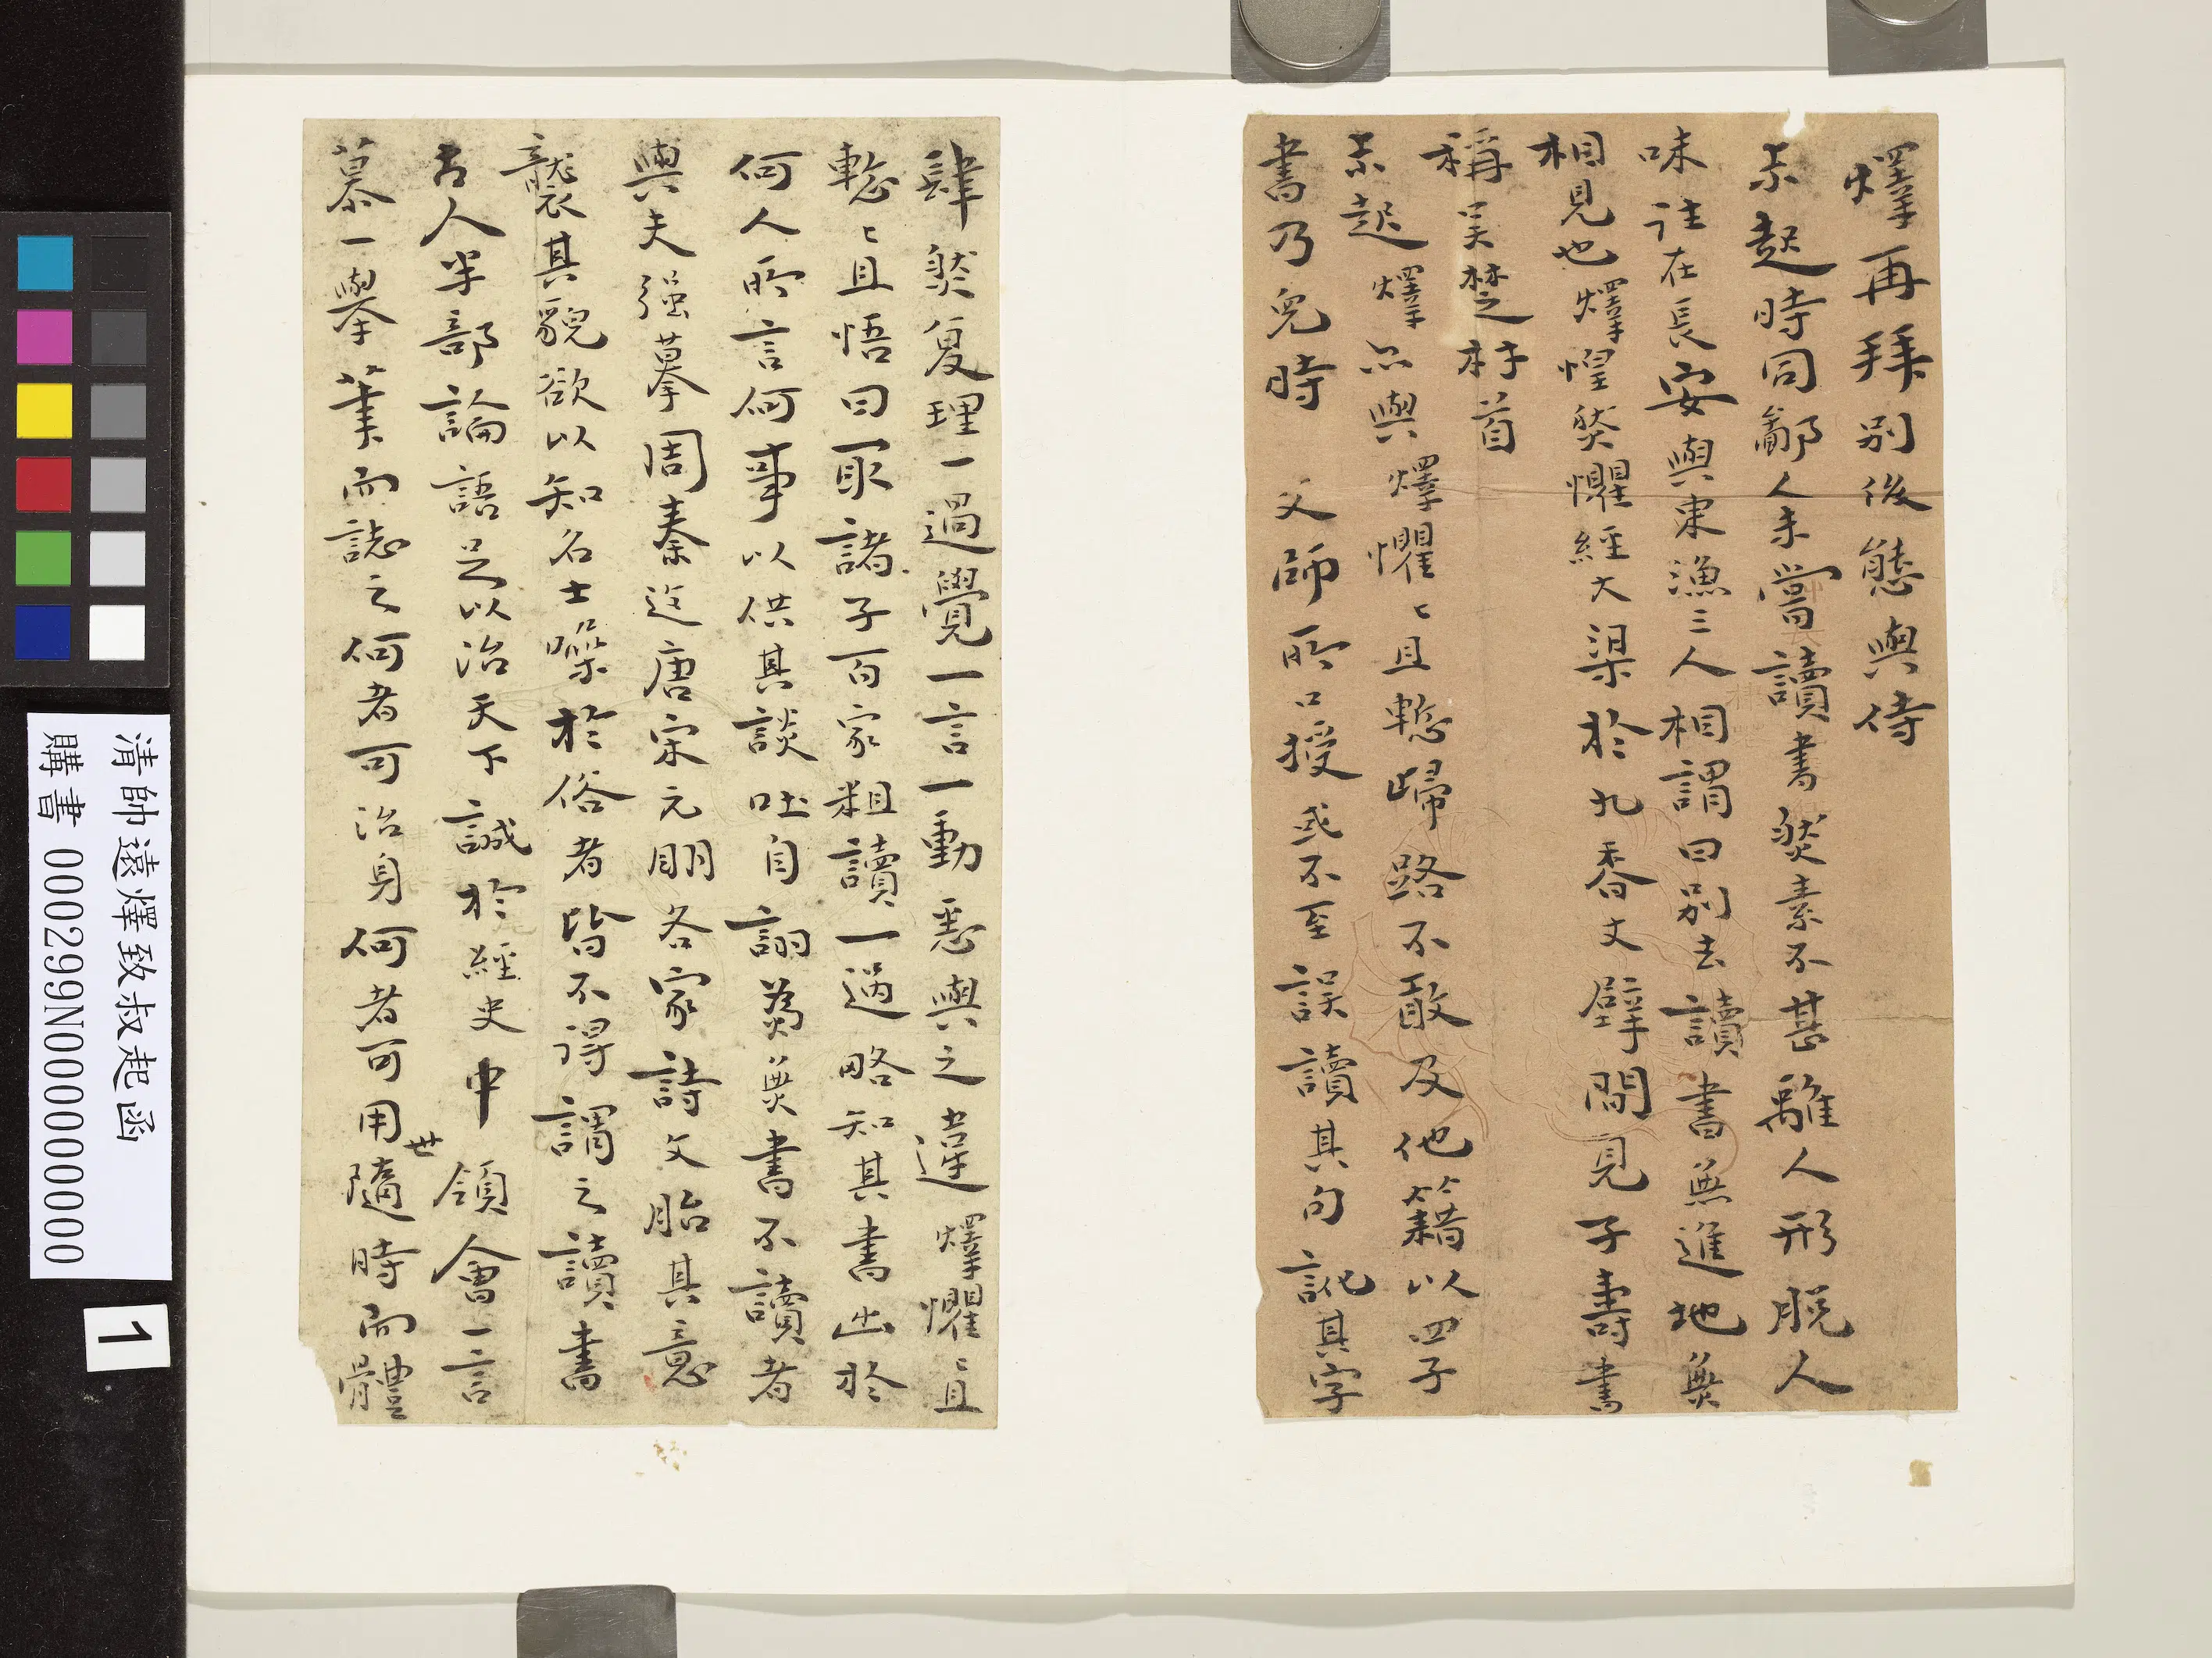 燡再拜別後態與侍
未起時同鄰人未嘗讀書然素不甚離人形脫人
味註在長安與東漁三人相謂曰別去讀書無進地無
相見也燡惶然懼經大梁於九香丈壁間見子壽書
稱吴楚材首
未起燡亦與燡懼〻且慙歸路不敢及他籍以四子
書乃兒時 父師所口授或不至誤讀其句訛其字
肆然復理一過覺一言一動悉與之違燡懼〻且
慙〻且悟曰取諸子百家粗讀一過略知其書出於
何人所言何事以供其談吐自詡為無書不讀者
與夫強摹周秦迄唐宋元朙各家詩文胎其意
襲其貌欲以知名士噪於俗者皆不得謂之讀書
古人半部論語足以治天下誠於經史中領會一言
慕一舉筆而誌之何者可治身何者可用世隨時而體
清帥遠燡致叔起函
購書 000299N000000000
1